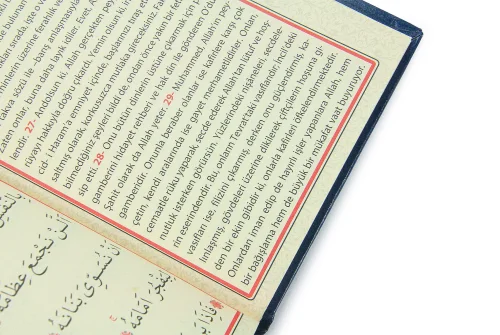 de bulunan
sırada, işte o
minlerin üzerine ferahlık ve
takva sözü ile –barış anlaşmasıyla
zaten onlar, buna daha layık idiler. Evet A
lendir. 27- Andolsun ki, Allah gerçekten pey
rüyayı hakkıyla doğru çıkardı. Yemin olsun ki
cid-i Haram'a emniyet içinde, başlarınızı tıraş et
saltmış olarak, korkusuzca mutlaka gireceksiniz. Fa
bilmediğiniz şeyleri bildi de, ondan önce yakın bir fet
sip etti. 28- Onu bütün dinlerin üstüne çıkarmak için p
gamberini hidayet rehberi ve hak din ile gönderen Odu
Şahit olarak da Allah yeter. 29- Muhammed, Allah'ın pey-
gamberidir. Onunla beraber olanlar ise kafirlere karşı çok
çetin, kendi aralarında ise gayet merhametlidirler. Onları,
cemaatle rüku yaparak, secde ederek Allah'tan lütuf ve hoş-
nutluk isterken görürsün. Yüzlerindeki nişaneleri, secdele-
rin eserindendir. Bu, onların Tevrat'taki vasıflarıdır. İncil'deki
vasıfları ise, filizini çıkarmış, derken onu güçlendirmiş, ka-
lınlaşmış, gövdeleri üzerine dikilerek çiftçilerin hoşuna gi-
den bir ekin gibidir ki, onlarla kafirleri öfkelendirmektedir.
Onlardan iman edip de hayırlı işler yapanlara Allah, hem
bir bağışlama hem de büyük bir mükafat vaat buyuruyor.
نَجْمَعَ عِظَامَهُ
نُسَوِّىَ بَنَانَهُ
اَمَامَهُ
فَاِذَا